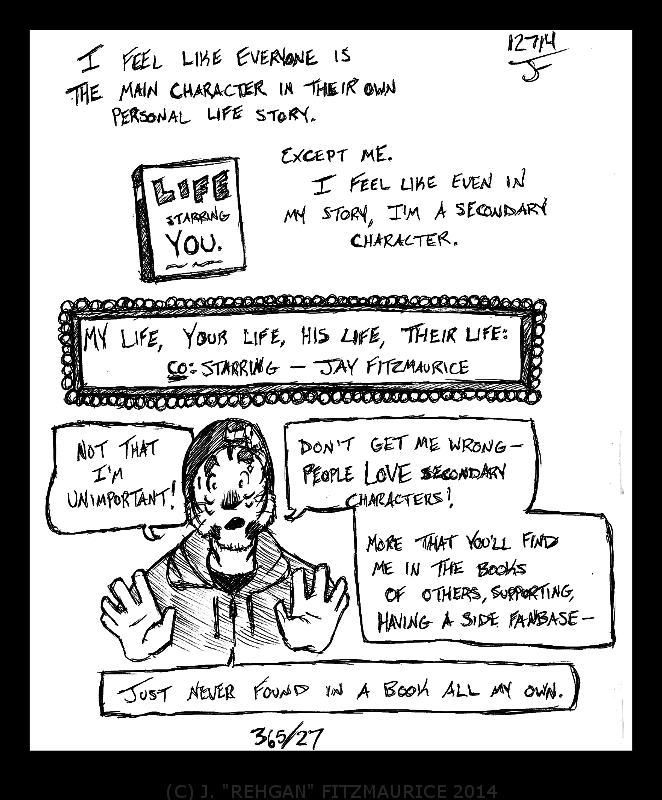 I FEEL LIKE EVERYONE IS
THE MAIN CHARACTER IN THEIR OWN
PERSONAL LIFE STORY.
12714
J
EXCEPT ME.
I FEEL LIKE EVEN IN
MY STORY, I'M A SECONDARY
CHARACTER.
LIFE
STARRING
YOU.
MY LIFE, YOUR LIFE, HIS LIFE, THEIR LIFE:
CO-STARRING — JAY FITZMAURICE
NOT THAT
I'M
UNIMPORTANT!
DON'T GET ME WRONG—
PEOPLE LOVE SECONDARY
CHARACTERS!
MORE THAT YOU'LL FIND
ME IN THE BOOKS
OF OTHERS, SUPPORTING,
HAVING A SIDE FANBASE—
JUST NEVER FOUND IN A BOOK ALL MY OWN.
365/27
(C) J. "REHGAN" FITZMAURICE 2014